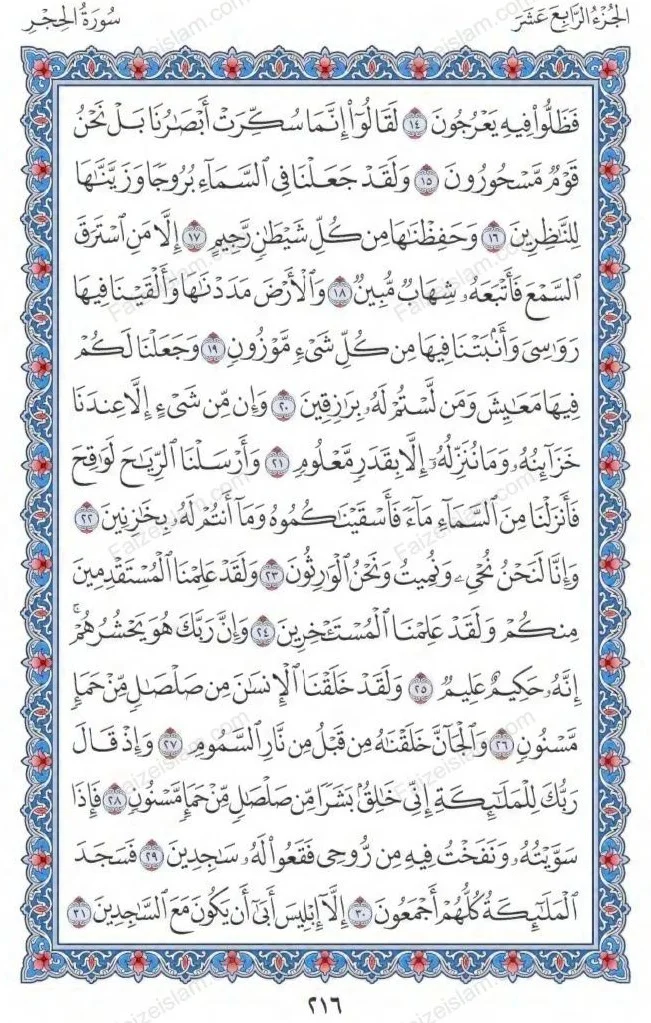 الجزء الرابع عشر
سورة الحجر
فَظَلُّوا۟ فِيهِ يَعْرُجُونَ ١٤ لَقَالُوٓا۟ إِنَّمَا سُكِّرَتْ أَبْصَٰرُنَا بَلْ نَحْنُ
قَوْمٌ مَّسْحُورُونَ ١٥ وَلَقَدْ جَعَلْنَا فِى ٱلسَّمَآءِ بُرُوجًا وَزَيَّنَّٰهَا
لِلنَّٰظِرِينَ ١٦ وَحَفِظْنَٰهَا مِن كُلِّ شَيْطَٰنٍ رَّجِيمٍ ١٧ إِلَّا مَنِ ٱسْتَرَقَ
ٱلسَّمْعَ فَأَتْبَعَهُۥ شِهَابٌ مُّبِينٌ ١٨ وَٱلْأَرْضَ مَدَدْنَٰهَا وَأَلْقَيْنَا فِيهَا
رَوَٰسِىَ وَأَنۢبَتْنَا فِيهَا مِن كُلِّ شَىْءٍ مَّوْزُونٍ ١٩ وَجَعَلْنَا لَكُمْ
فِيهَا مَعَٰيِشَ وَمَن لَّسْتُمْ لَهُۥ بِرَٰزِقِينَ ٢٠ وَإِن مِّن شَىْءٍ إِلَّا عِندَنَا
خَزَآئِنُهُۥ وَمَا نُنَزِّلُهُۥٓ إِلَّا بِقَدَرٍ مَّعْلُومٍ ٢١ وَأَرْسَلْنَا ٱلرِّيَٰحَ لَوَٰقِحَ
فَأَنزَلْنَا مِنَ ٱلسَّمَآءِ مَآءً فَأَسْقَيْنَٰكُمُوهُ وَمَآ أَنتُمْ لَهُۥ بِخَٰزِنِينَ ٢٢
وَإِنَّا لَنَحْنُ نُحْىِۦ وَنُمِيتُ وَنَحْنُ ٱلْوَٰرِثُونَ ٢٣ وَلَقَدْ عَلِمْنَا ٱلْمُسْتَقْدِمِينَ
مِنكُمْ وَلَقَدْ عَلِمْنَا ٱلْمُسْتَـْٔخِرِينَ ٢٤ وَإِنَّ رَبَّكَ هُوَ يَحْشُرُهُمْ ۚ
إِنَّهُۥ حَكِيمٌ عَلِيمٌ ٢٥ وَلَقَدْ خَلَقْنَا ٱلْإِنسَٰنَ مِن صَلْصَٰلٍ مِّنْ حَمَإٍ
مَّسْنُونٍ ٢٦ وَٱلْجَآنَّ خَلَقْنَٰهُ مِن قَبْلُ مِن نَّارِ ٱلسَّمُومِ ٢٧ وَإِذْ قَالَ
رَبُّكَ لِلْمَلَٰٓئِكَةِ إِنِّى خَٰلِقٌۢ بَشَرًا مِّن صَلْصَٰلٍ مِّنْ حَمَإٍ مَّسْنُونٍ ٢٨ فَإِذَا
سَوَّيْتُهُۥ وَنَفَخْتُ فِيهِ مِن رُّوحِى فَقَعُوا۟ لَهُۥ سَٰجِدِينَ ٢٩ فَسَجَدَ
ٱلْمَلَٰٓئِكَةُ كُلُّهُمْ أَجْمَعُونَ ٣٠ إِلَّآ إِبْلِيسَ أَبَىٰٓ أَن يَكُونَ مَعَ ٱلسَّٰجِدِينَ ٣١
٢١٦
Faizeislam.com